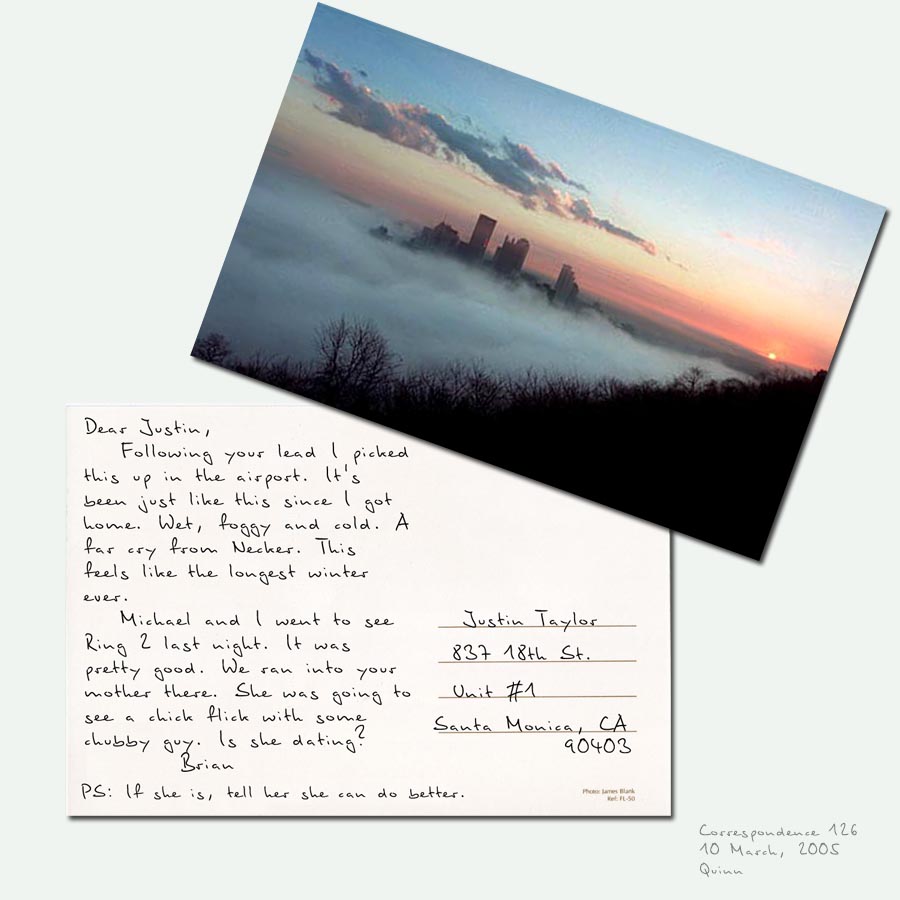 Dear Justin,
Following your lead I picked
this up in the airport. It's
been just like this since I got
home. Wet, foggy and cold. A
far cry from Necker. This
feels like the longest winter
ever.
Michael and I went to see
Ring 2 last night. It was
pretty good. We ran into your
mother there. She was going to
see a chick flick with some
chubby guy. Is she dating?
Brian
PS: If she is, tell her she can do better.
Justin Taylor
837 18th St.
Unit #1
Santa Monica, CA
90403
Photo: James Blank
Ref: FL-50
Correspondence 126
10 March, 2005
Quinn